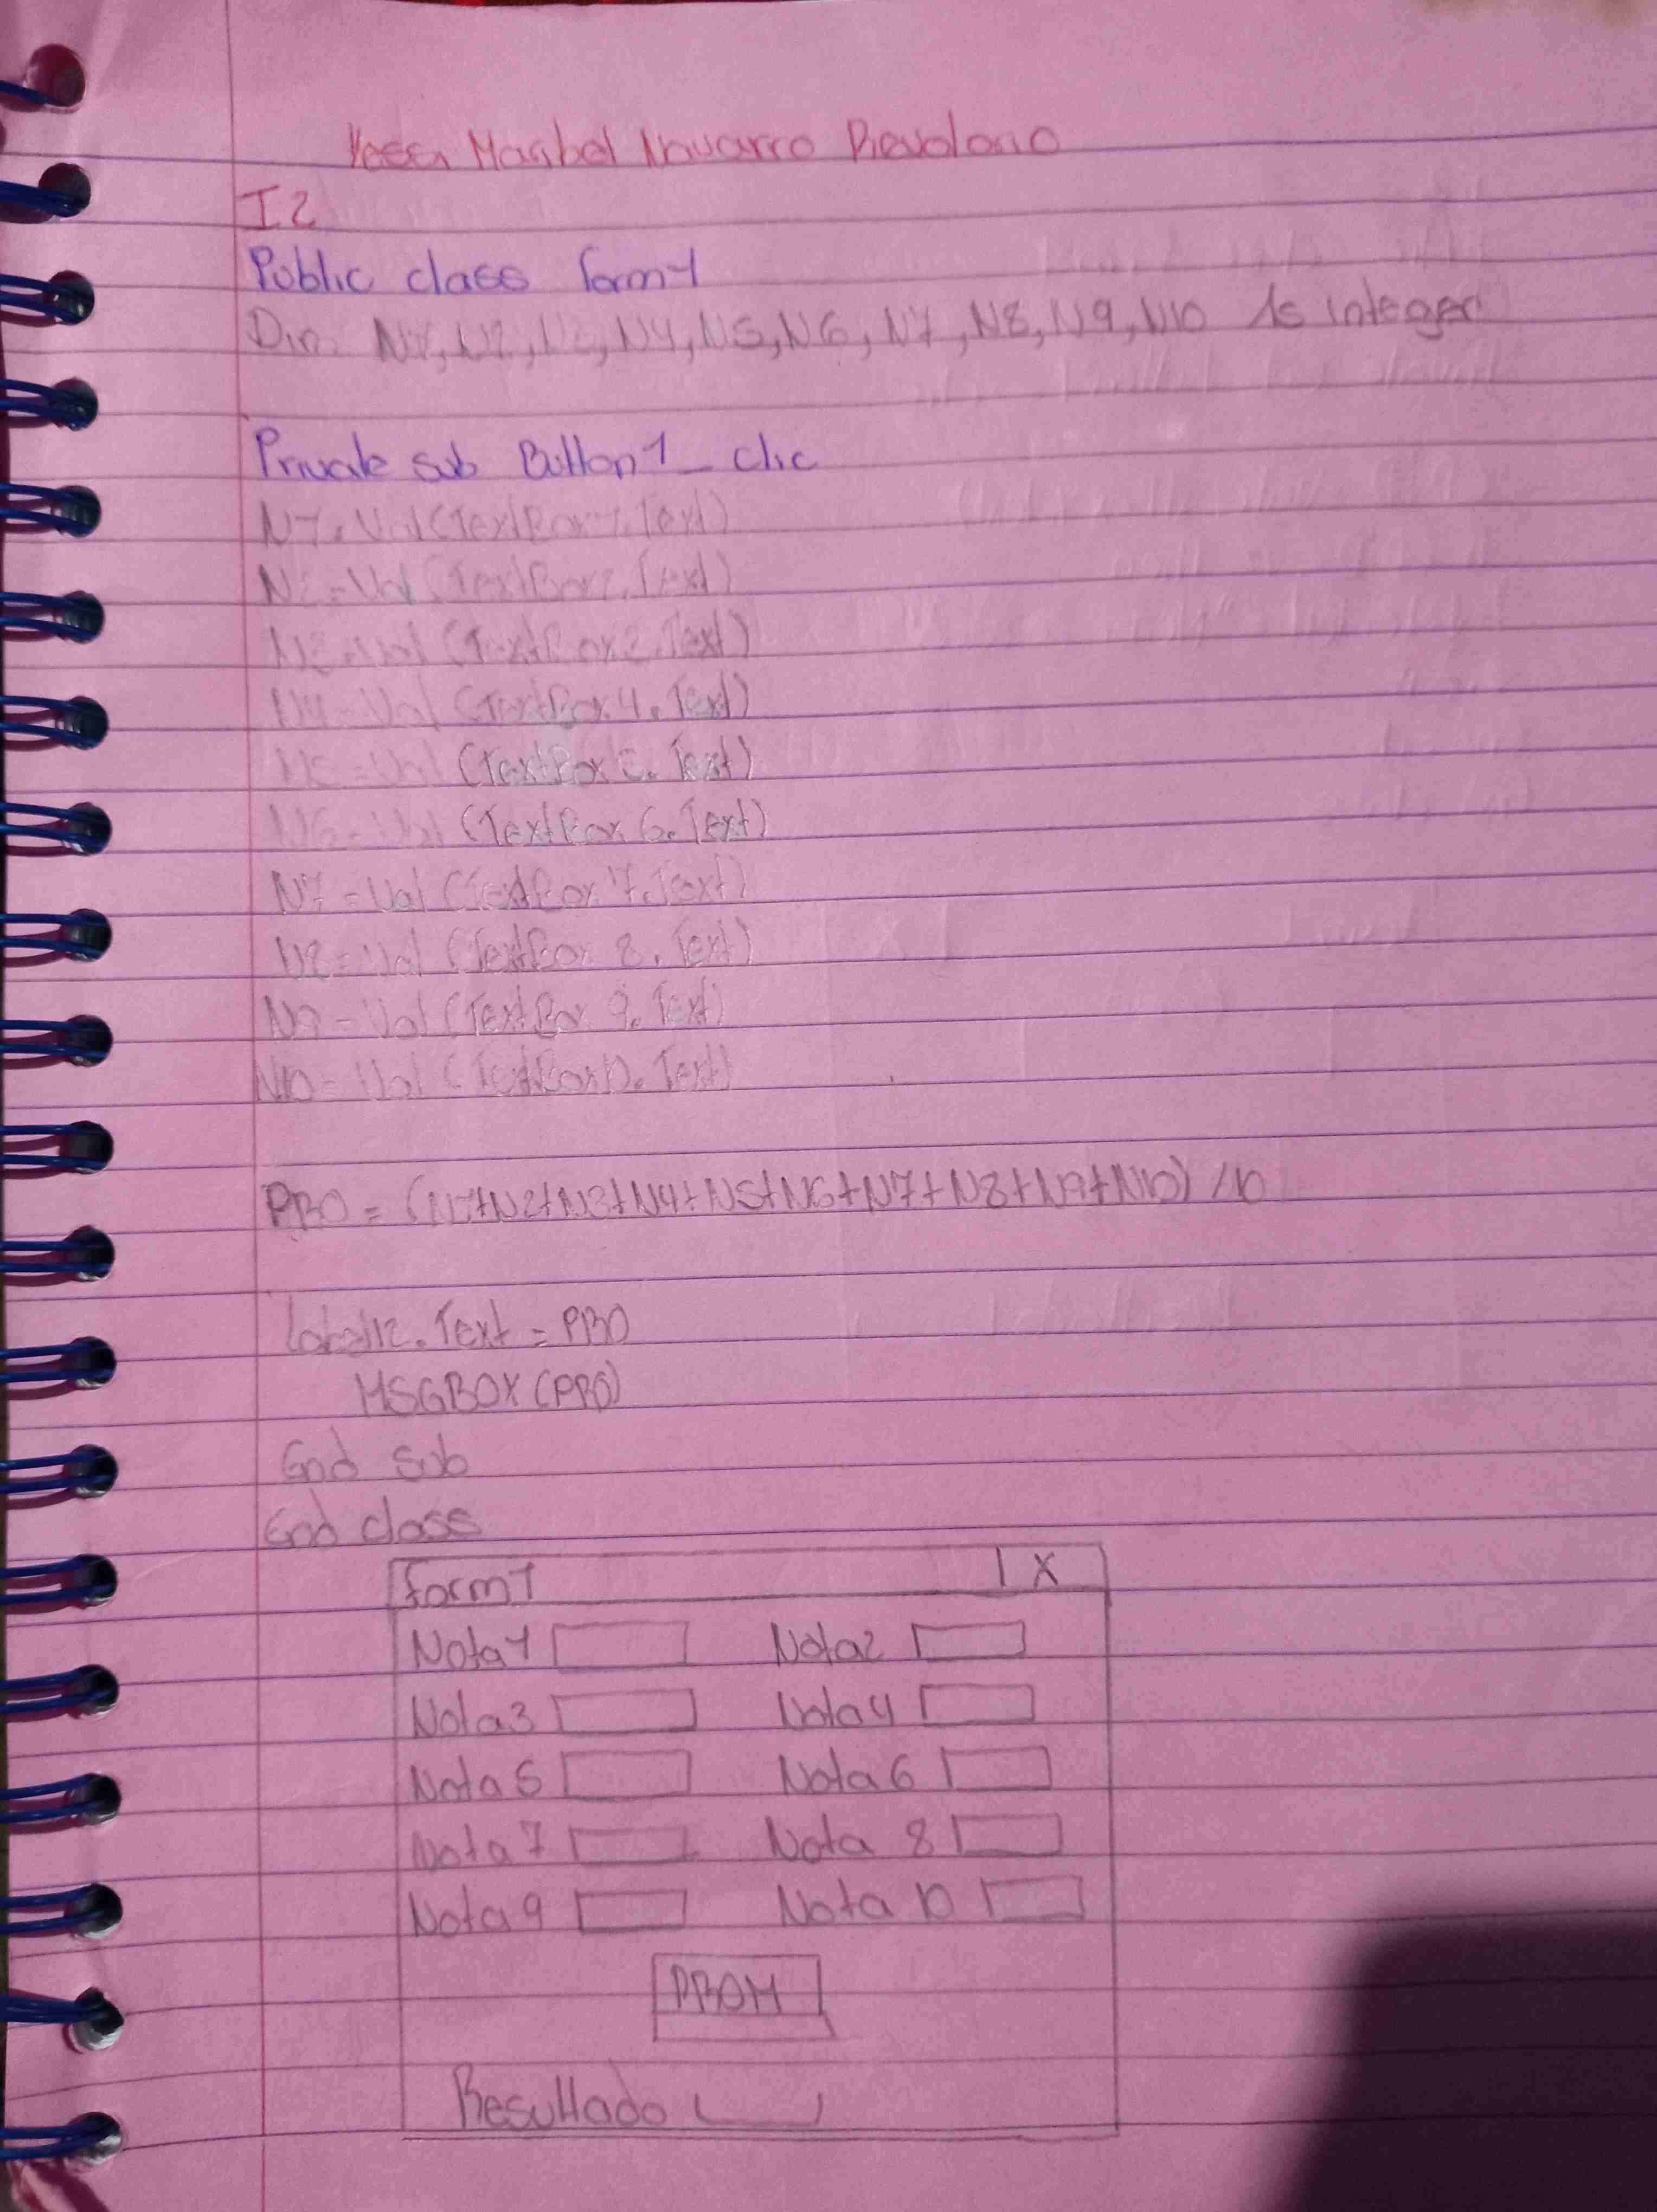 Maribel Navarro Revolorio
I2
Public class form1
Dim N1, N2, N3, N4, N5, N6, N7, N8, N9, N10 As integer
Private sub Button1_clic
N1=Val(TextBox1.Text)
N2=Val(TextBox2.Text)
N3=Val(TextBox3.Text)
N4=Val(TextBox4.Text)
N5=Val(TextBox5.Text)
N6=Val(TextBox6.Text)
N7=Val(TextBox7.Text)
N8=Val(TextBox8.Text)
N9=Val(TextBox9.Text)
N10=Val(TextBox10.Text)
PRO=(N1+N2+N3+N4+N5+N6+N7+N8+N9+N10)/10
Label12.Text=PRO
MSGBOX(PRO)
End sub
End class
form1 X
Nota1 Nota2
Nota3 Nota4
Nota5 Nota6
Nota7 Nota 8
Nota9 Nota 10
PROM
Resultado